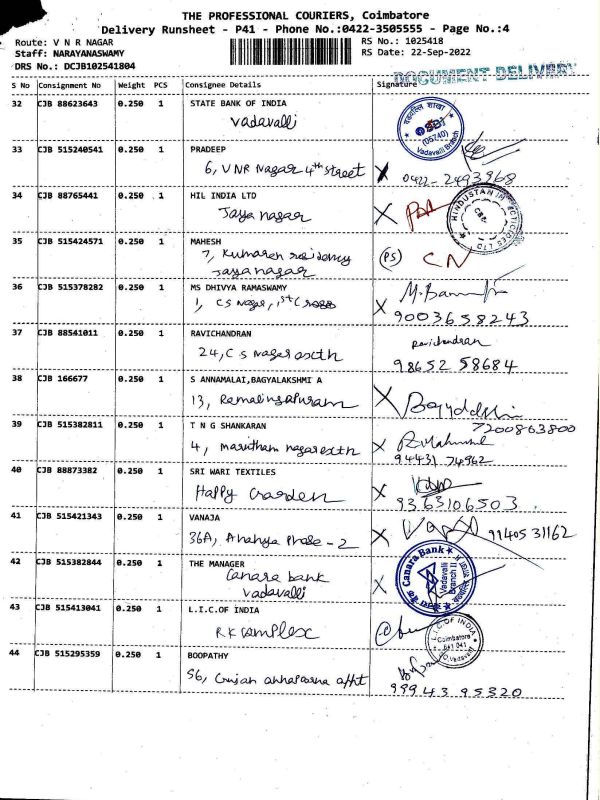 THE PROFESSIONAL COURIERS, Coimbatore
Delivery Runsheet - P41 - Phone No.:0422-3505555 - Page No.:4
Route: V N R NAGAR
RS No.: 1025418
Staff: NARAYANASWAMY
RS Date: 22-Sep-2022
DRS No.: DCJB102541804
DOCUMENT DELIVERY
S No Consignment No Weight PCS Consignee Details Signature
32 CJB 88623643 0.250 1 STATE BANK OF INDIA
Vadavalli
SBI
(05740)
Vadavalli Branch
33 CJB 515240541 0.250 1 PRADEEP
6, VNR Nagar 4th street
0422-2493968
34 CJB 88765441 0.250 1 HIL INDIA LTD
Jaya nagar
35 CJB 515424571 0.250 1 MAHESH
7, Kumaran residency
Jaya nagar
(PS) CN
36 CJB 515378282 0.250 1 MS DHIVYA RAMASWAMY
1, CS Nagar, 1st Cross
9003658243
37 CJB 88541011 0.250 1 RAVICHANDRAN
24, C S Nagar
Ravichandran
98652 58684
38 CJB 166677 0.250 1 S ANNAMALAI,BAGYALAKSHMI A
13, Ramalingapuram
39 CJB 515382811 0.250 1 T N G SHANKARAN
7200863800
4, marutham nagar
94431 74962
40 CJB 88873382 0.250 1 SRI WARI TEXTILES
Happy Garden
9363106503
41 CJB 515421343 0.250 1 VANAJA
36A, Ananya Phase - 2
9140531162
42 CJB 515382844 0.250 1 THE MANAGER
Canara bank
Vadavalli
Canara Bank
Vadavalli
Branch II
43 CJB 515413041 0.250 1 L.I.C.OF INDIA
R K complex
L.I.C OF INDIA
Coimbatore
641 041
Vadavalli
44 CJB 515295359 0.250 1 BOOPATHY
S6, annapoorna
99943 95320